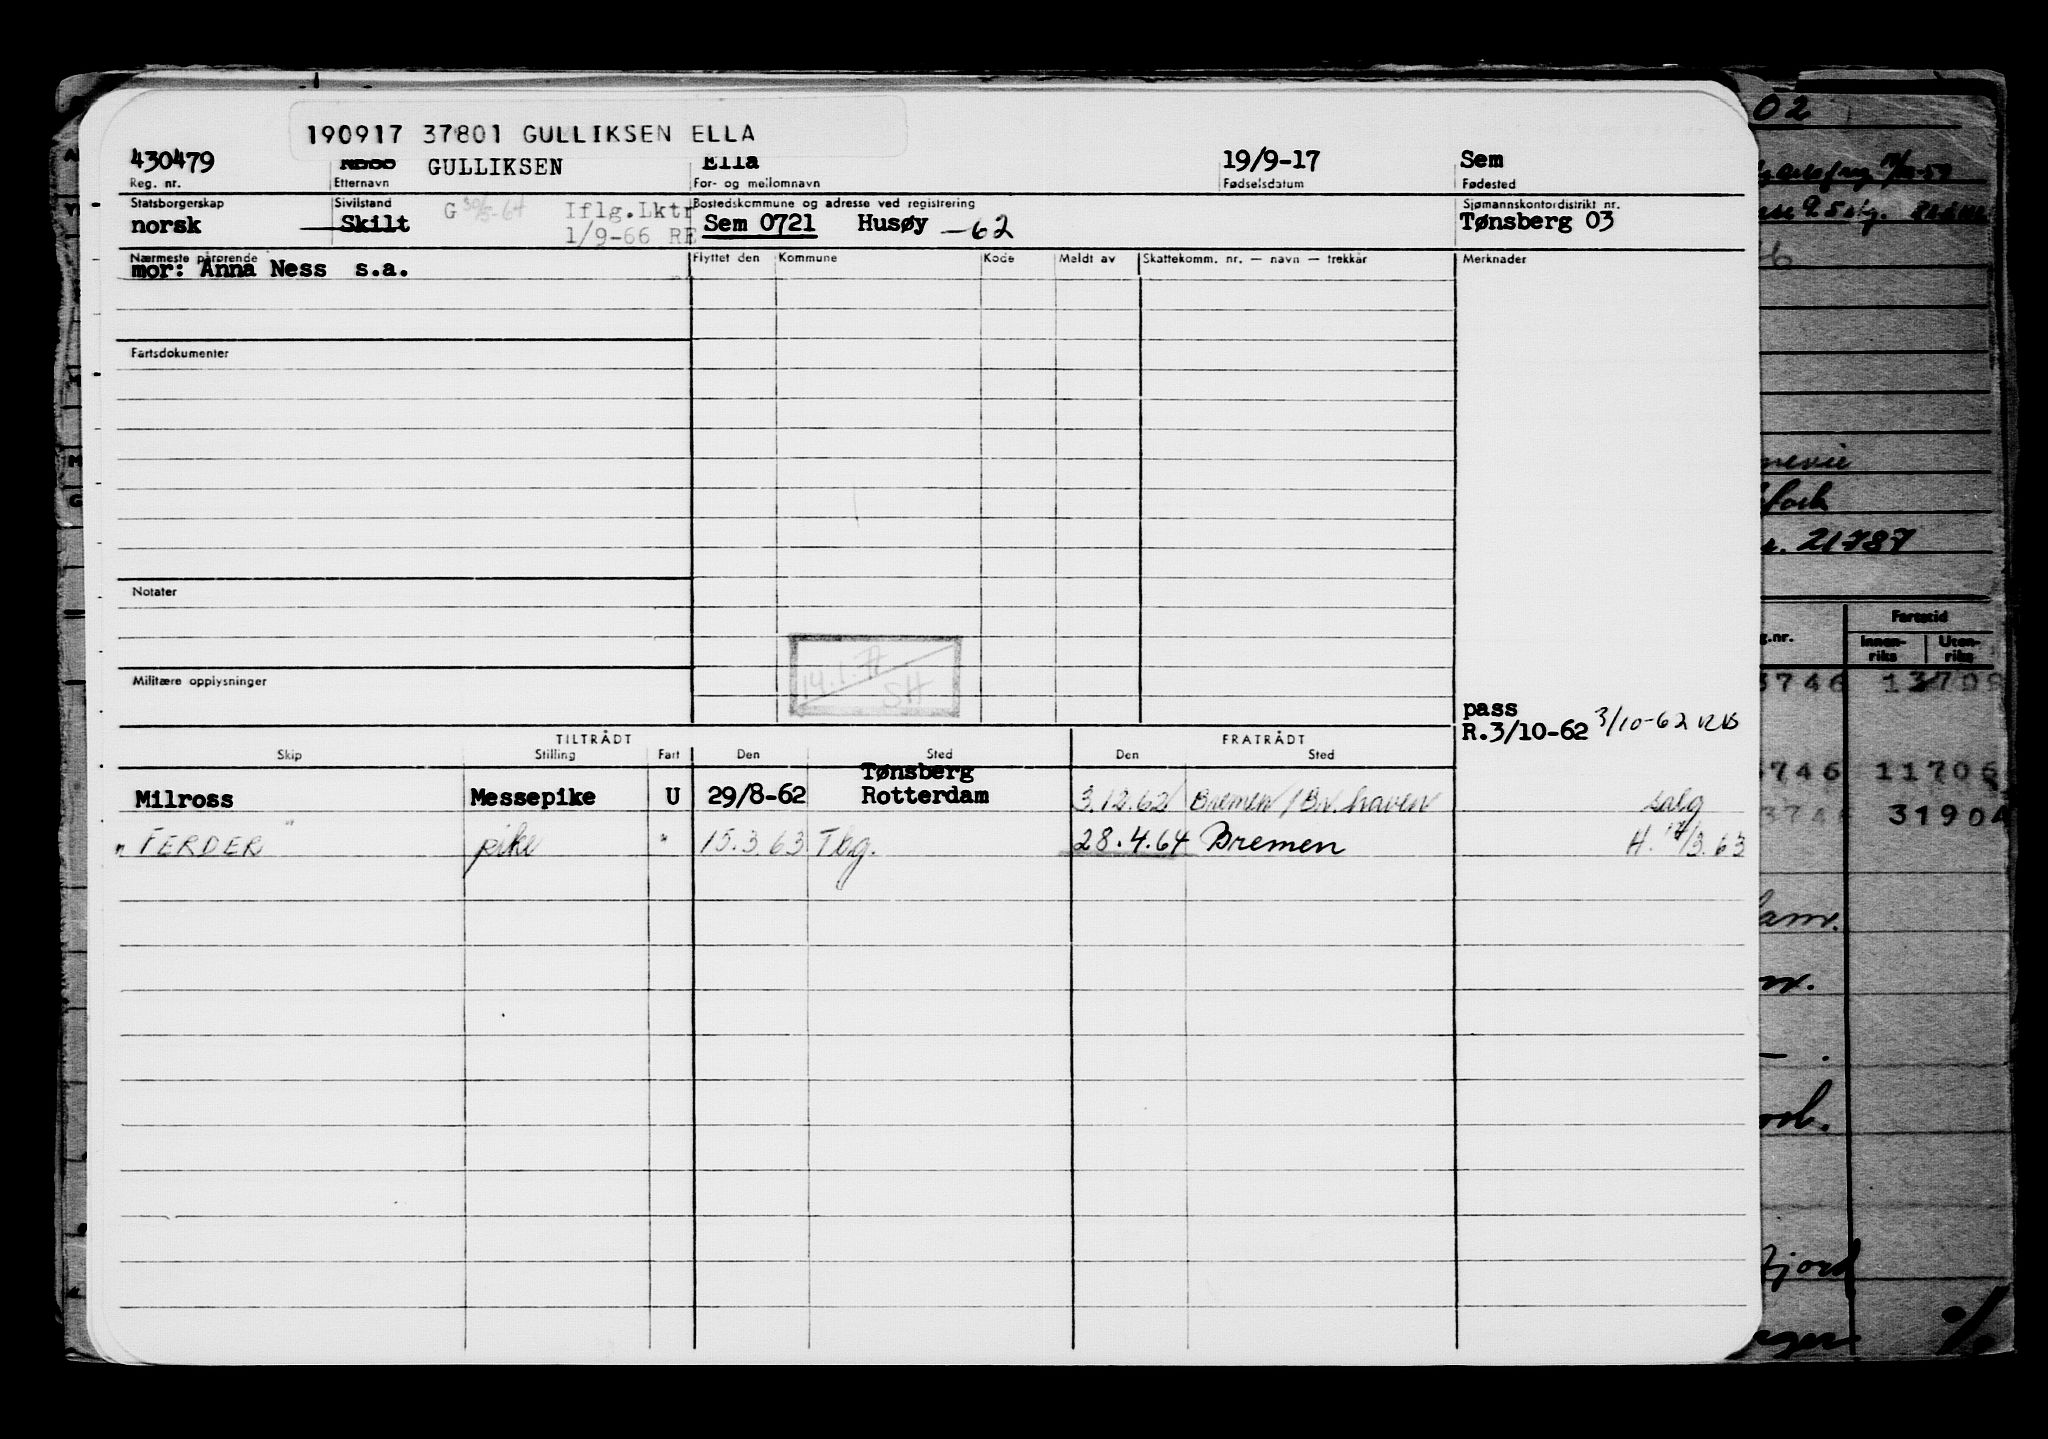 190917 37801 GULLIKSEN ELLA
430479 Ness GULLIKSEN Ella 19/9-17 Sem
Reg. nr. Etternavn For- og mellomnavn Fødselsdatum Fødested
Statsborgerskap Sivilstand G 30/5-64 Iflg.Lktr Bostedskommune og adresse ved registrering Sjømannskontordistrikt nr.
norsk Skilt 1/9-66 RE Sem 0721 Husøy -62 Tønsberg 03
Nærmeste pårørende Flyttet den Kommune Kode Meldt av Skattekomm. nr. — navn — trekkår Merknader
mor: Anna Ness s.a.
Fartsdokumenter
Notater
14.1.77
SH
Militære opplysninger
pass
R.3/10-62 3/10-62
TILTRÅDT FRATRÅDT
Skip Stilling Fart Den Sted Den Sted
Tønsberg
Milross Messepike U 29/8-62 Rotterdam 3.12.62 Bremen/Br.haven salg
" FERDER " pike " 15.3.63 Tbg. 28.4.64 Bremen H. 14/3.63
02
21787
Fartstid
g.nr. Innen-riks Uten-riks
3746 13709
3746 11706
3746 31904
fjord